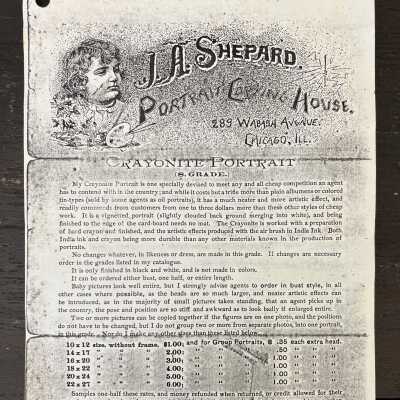 J.A. SHEPARD.
PORTRAIT COPYING HOUSE.
289 WABASH AVENUE.
CHICAGO, ILL.
CRAYONITE PORTRAIT
(S. GRADE.)
My Crayonite Portrait is one specially devised to meet any and all cheap competition an agent
has to contend with in the country; and while it costs but a trifle more than plain albumens or colored
tin-types (sold by some agents as oil portraits), it has a much neater and more artistic effect, and
readily commends from customers from one to three dollars more than these other styles of cheap
work. It is a vignetted portrait (slightly clouded back ground merging into white), and being
finished to the edge of the card-board needs no mat. The Crayonite is worked with a preparation
of hard crayon and finished, and the artistic effects produced with the air brush in India Ink. Both
India ink and crayon being more durable than any other materials known in the production of
portraits.
No changes whatever, in likeness or dress, are made in this grade. If changes are necessary
order in the grades listed in my catalogue.
It is only finished in black and white, and is not made in colors.
It can be ordered either bust, one half, or entire length.
Baby pictures look well entire, but I strongly advise agents to order in bust style, in all
other cases where possible, as the heads are so much larger, and neater artistic effects can
be introduced, as in the majority of small pictures taken standing, that an agent picks up in
the country, the pose and position are so stiff and awkward as to look badly if enlarged entire.
Two or more pictures can be copied together if the figures are on one photo, and the positions
do not have to be changed, but I do not group two or more from separate photos, into one portrait,
in this grade. Nor do I make any other sizes than these listed below.
10 x 12 size, without frame, $1.00; and for Group Portraits, @ .35 each extra head.
14 x 17 " " " 2.00; " " " .50 " " "
16 x 20 " " " 3.00; " " "
18 x 22 " " " 4.00; " " " 1.00 " " "
20 x 24 " " " 5.00; " " " 1.00 " " "
22 x 27 " " " 6.00; " " " 1.00 " " "
Samples one-half these rates, and money refunded when returned, or credit allowed for their